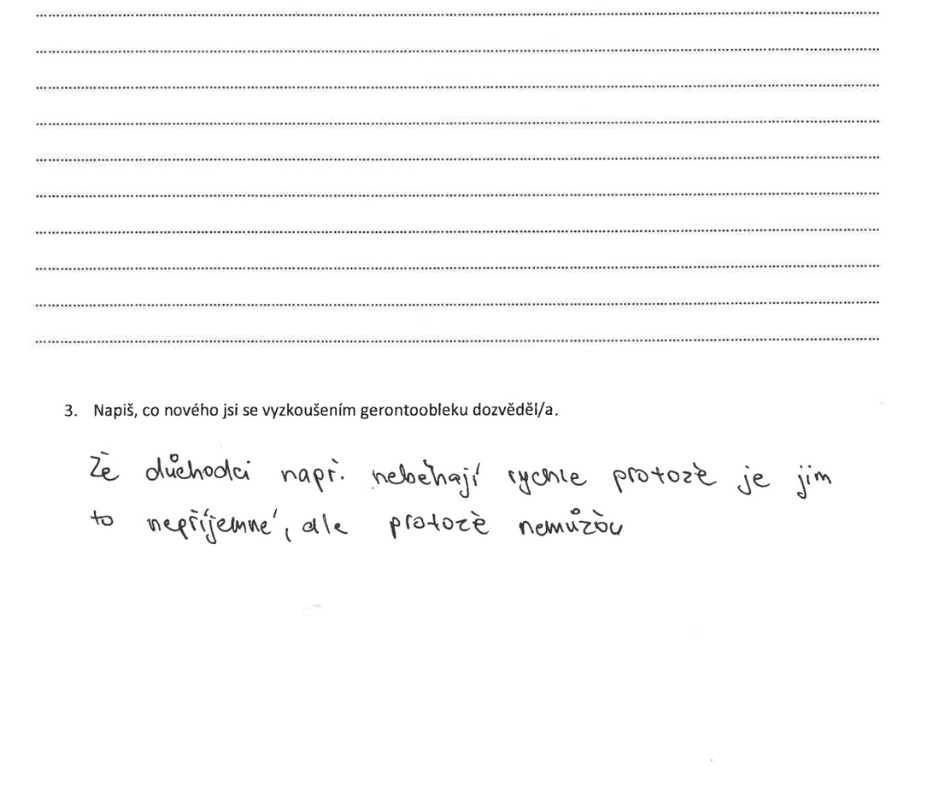 3. Napiš, co nového jsi se vyzkoušením gerontoobleku dozvěděl/a.
Že důchodci např. neběhají rychle protože je jim
to nepříjemné, ale protože nemůžou